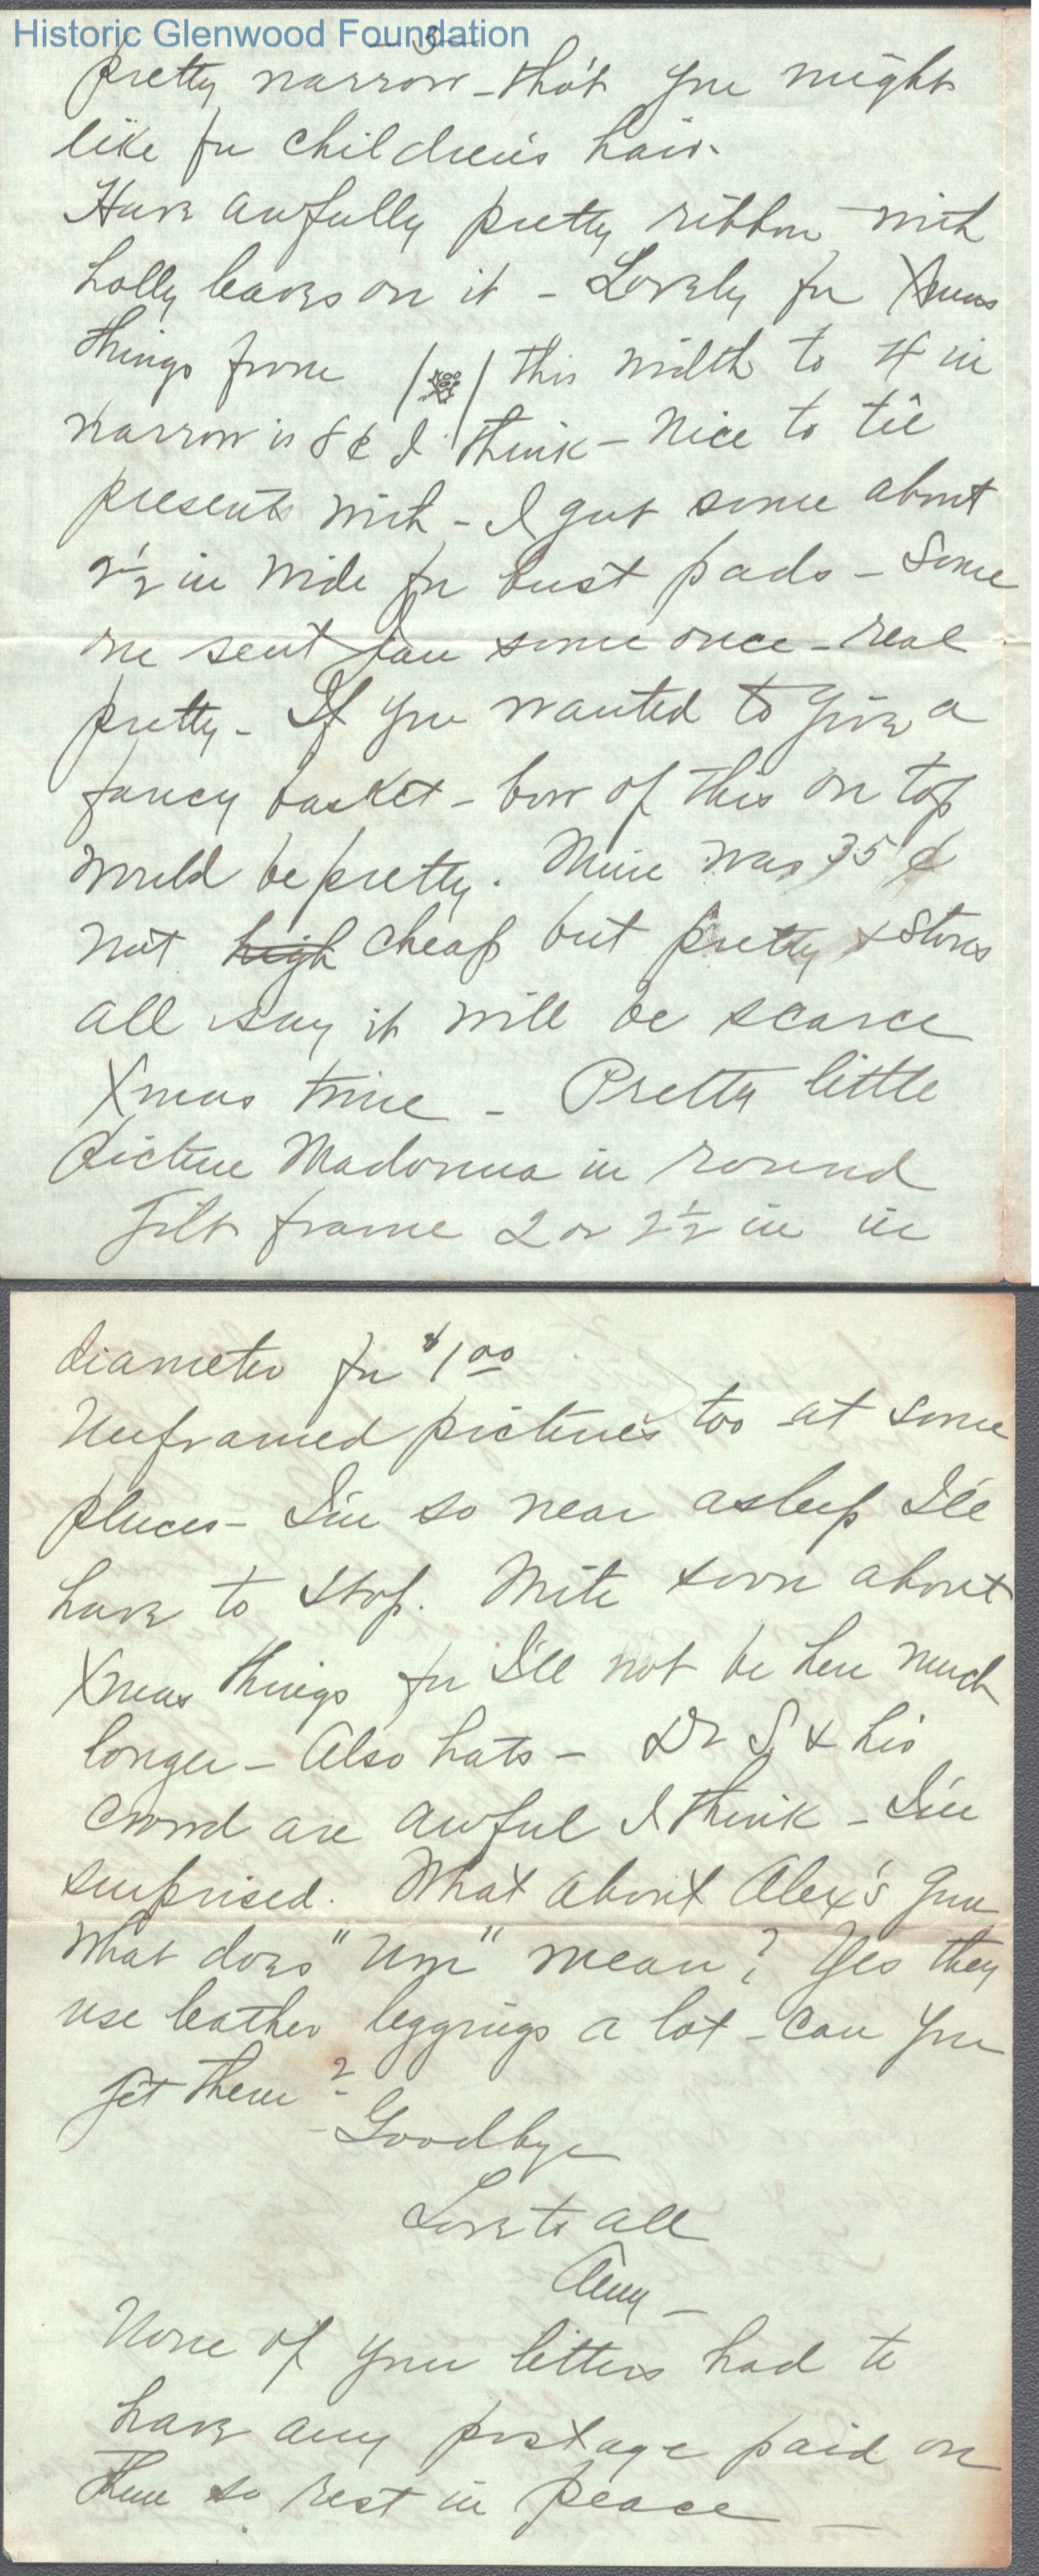 Historic Glenwood Foundation
- 3 -
pretty narrow - that you might
like for children's hair.
Have awfully pretty ribbon with
holly leaves on it - Lovely for Xmas
things from | | this width to 4 in
narrow is 8¢ I think - Nice to tie
presents with - I got some about
2 1/2 in wide for bust pads - Some
one sent some once - real
pretty - If you wanted to give a
fancy basket - bow of this on top
would be pretty. Mine was 35¢
not high cheap but pretty & stores
all say it will be scarce
Xmas time - Pretty little
picture Madonna in round
gilt frame 2 or 2 1/2 in in
diameter for $1.00
Unframed pictures too at some
places - I'm so near asleep I'll
have to stop. Write soon about
Xmas things for I'll not be here much
longer - Also hats - Dr S. & his
crowd are awful I think - I'm
surprised. What about Alex's gun
What does "Um" mean? Yes they
use leather leggings a lot - Can you
get them?
- Goodbye
Love to all
Amy -
None of your letters had to
have any postage paid on
them so rest in peace -